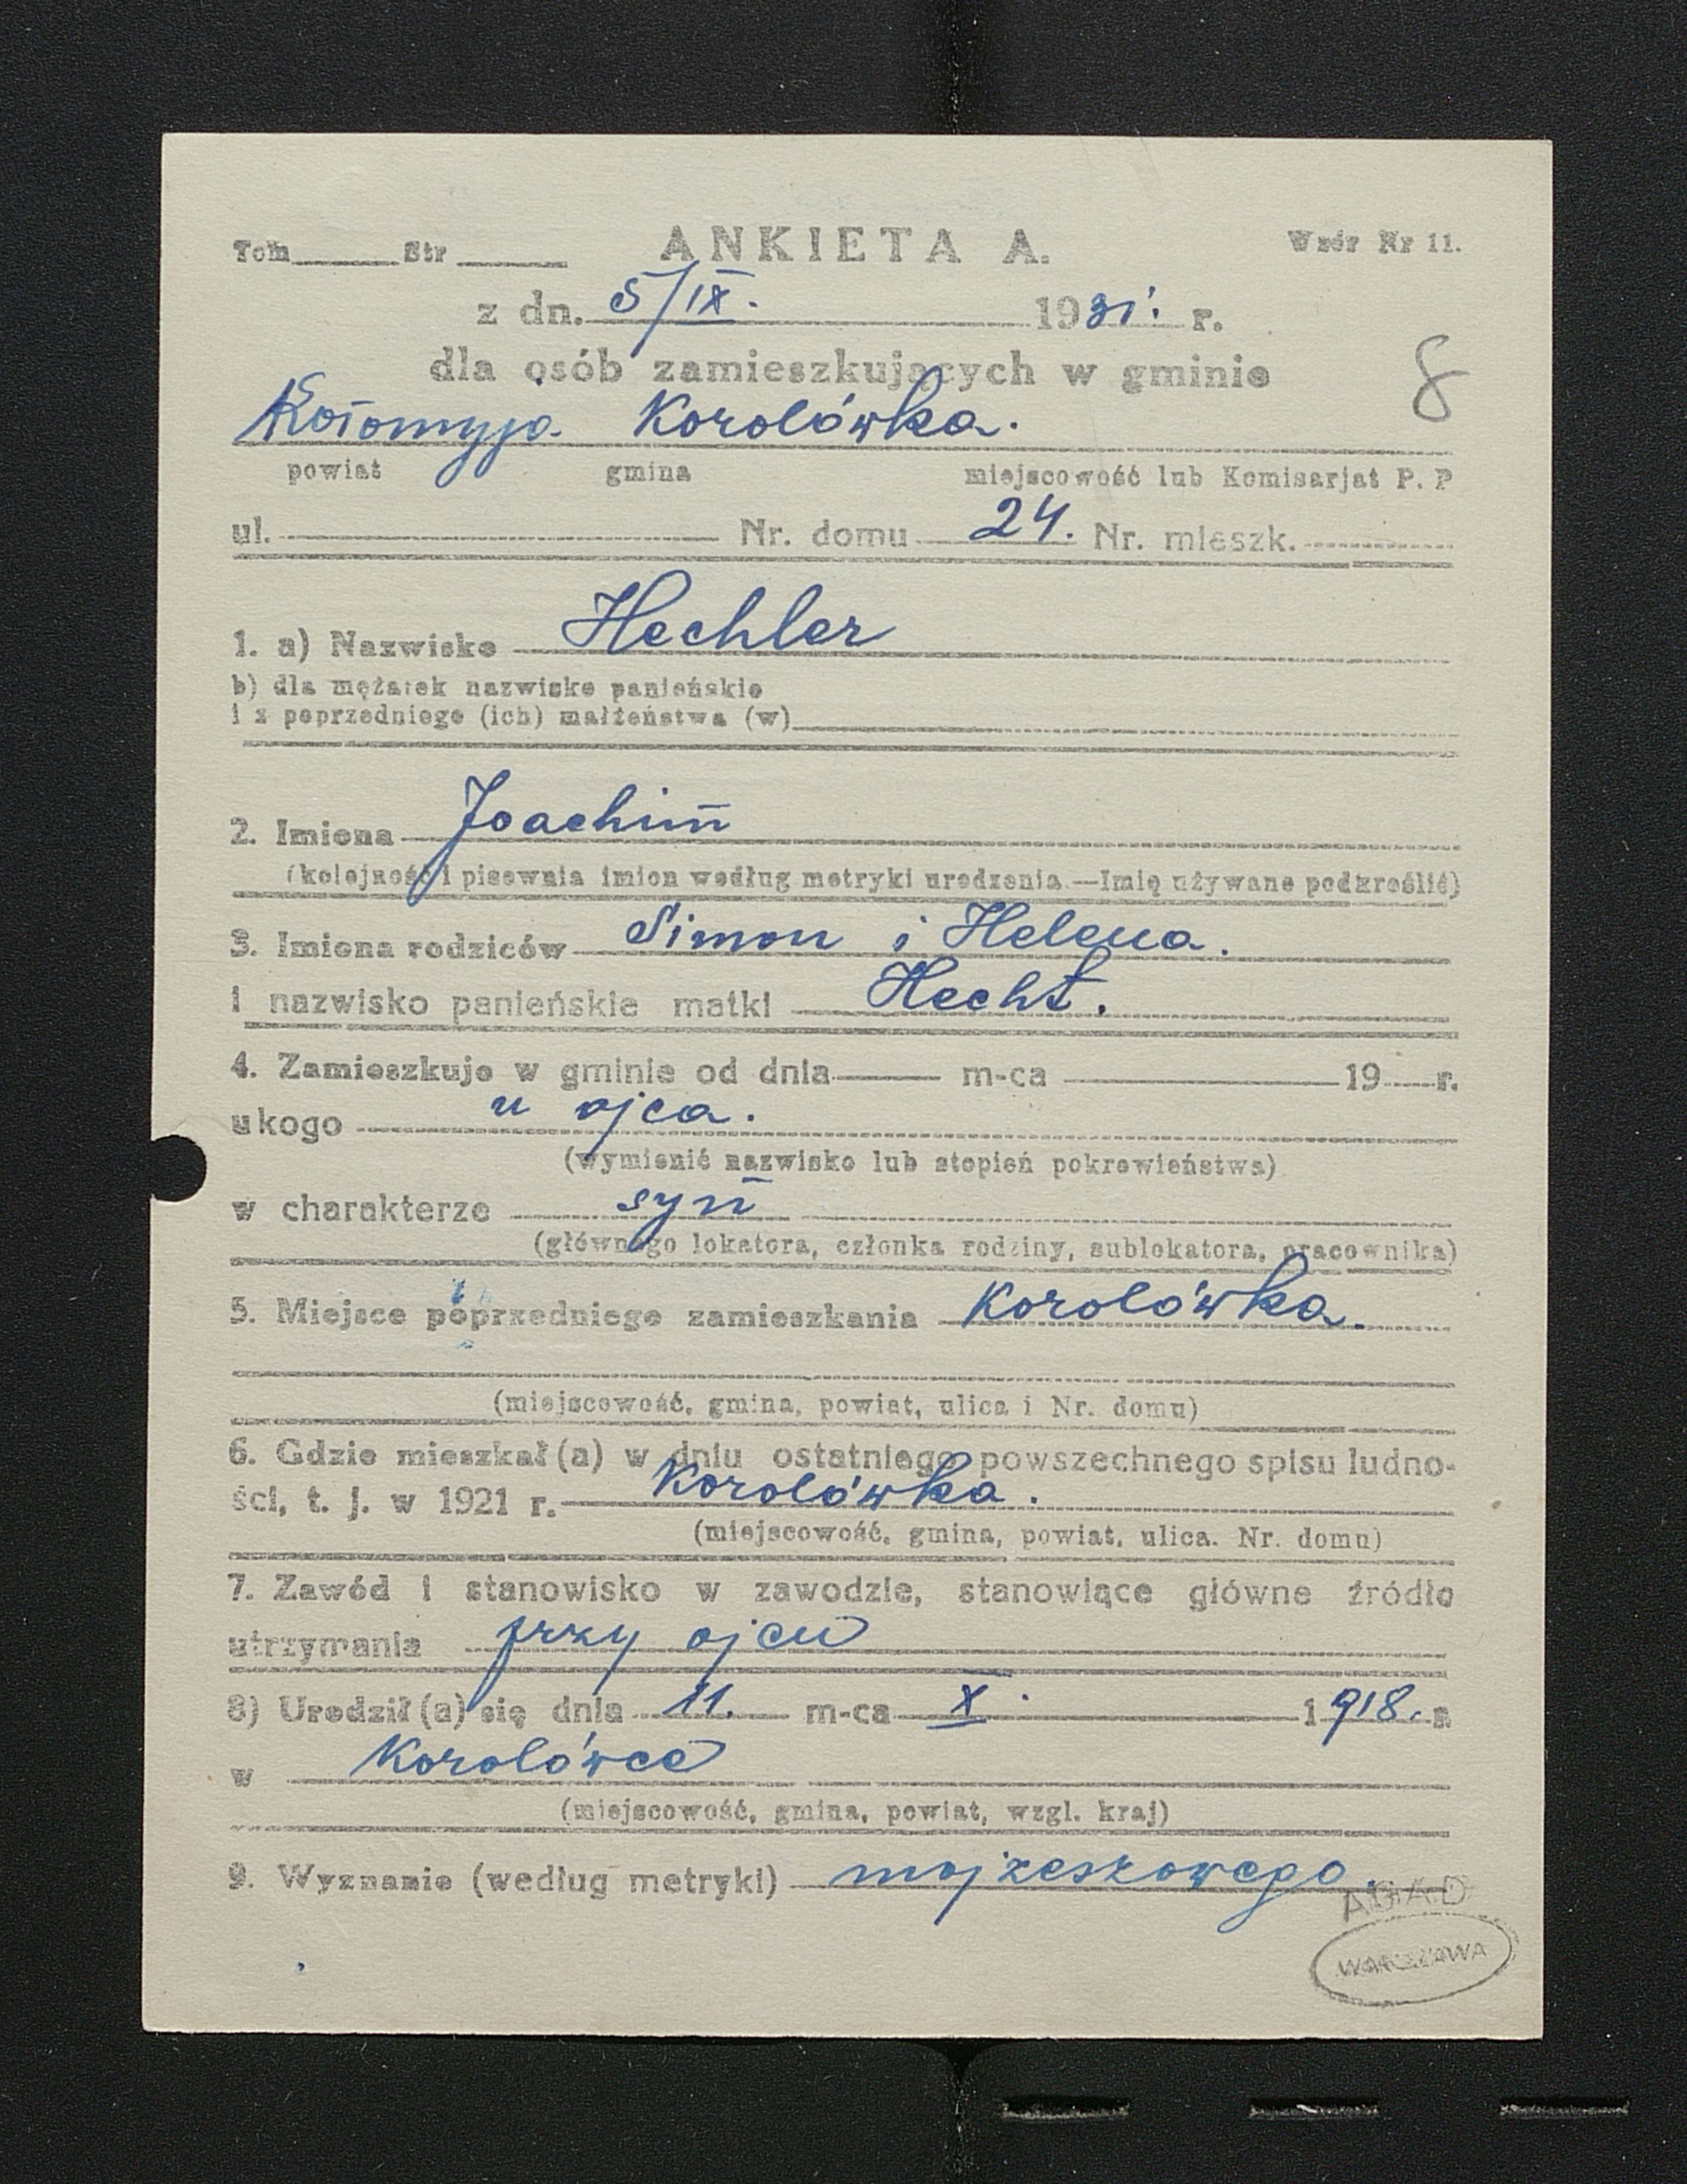 Tom Str ANKIETA A. Wzór Nr 11.
z dn. 5/IX. 1931. r.
dla osób zamieszkujących w gminie 8
Kołomyja Korolówka.
powiat gmina miejscowość lub Komisarjat P. P
ul. Nr. domu 24. Nr. mieszk.
1. a) Nazwisko Hechler
b) dla mężatek nazwisko panieńskie
i z poprzedniego (ich) małżeństwa (w)
2. Imiona Joachim
(kolejność i pisownia imion według metryki urodzenia.—Imię używane podkreślić)
3. Imiona rodziców Simon i Helena.
i nazwisko panieńskie matki Hecht.
4. Zamieszkuje w gminie od dnia m-ca 19 r.
u kogo u ojca.
(wymienić nazwisko lub stopień pokrewieństwa)
w charakterze syn
(głównego lokatora, członka rodziny, sublokatora, pracownika)
5. Miejsce poprzedniego zamieszkania Korolówka.
(miejscowość, gmina, powiat, ulica i Nr. domu)
6. Gdzie mieszkał(a) w dniu ostatniego powszechnego spisu ludno-
ści, t. j. w 1921 r. Korolówka.
(miejscowość, gmina, powiat, ulica. Nr. domu)
7. Zawód i stanowisko w zawodzie, stanowiące główne źródło
utrzymania przy ojcu
8) Urodził(a) się dnia 11. m-ca X. 1918. r
w Korolówce
(miejscowość, gmina, powiat, wzgl. kraj)
9. Wyznanie (według metryki) mojżeszowego.
AGAD
WARSZAWA